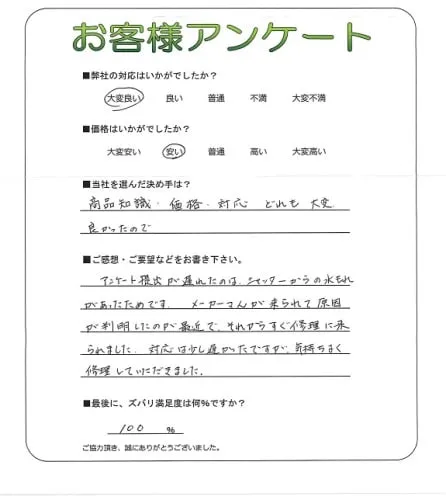 お客様アンケート
■弊社の対応はいかがでしたか?
大変良い 良い 普通 不満 大変不満
■価格はいかがでしたか?
大変安い 安い 普通 高い 大変高い
■当社を選んだ決め手は?
商品知識・価格・対応 どれも 大変
良かったので
■ご感想・ご要望などをお書き下さい。
アンケート提出が遅れたのは、シャッターからの水もれ
があったためです。 メーカーさんが来られて原因
が判明したのが最近で、それからすぐ修理に来
られました。対応は少し遅かったですが、気持ちよく
修理していただきました。
■最後に、ズバリ満足度は何%ですか?
100 %
ご協力頂き、誠にありがとうございました。